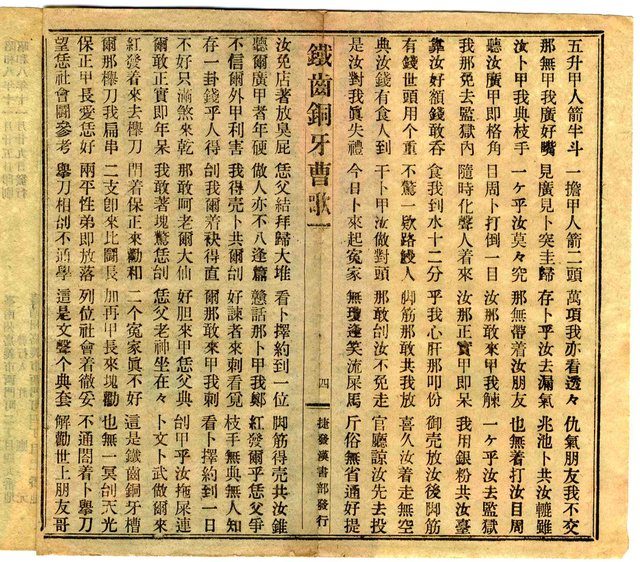 五升甲人箭半斗 一擔甲人箭二頭 萬項我亦看透々 仇氣朋友我不交
那無甲我廣好嘴 見廣見卜突圭歸 存卜乎汝去漏氣 兆池卜共汝轆雖
汝卜甲我典枝手 一ケ乎汝莫々究 那無帶着汝朋友 也無着打汝目周
聽汝廣甲即格角 日周卜打倒一目 汝那敢來甲我觫 一ケ乎汝去監獄
我那免去監獄內 隨時化聲人着來 汝那正實甲即呆 我用銀粉共汝臺
靠汝好額錢敢吞 食我到水十二分 乎我心肝那叩份 御売放汝後脚筋
有錢世頭用个重 不驚一欵路饅人 脚筋那敢共我放 喜久汝着走無空
典汝錢有食人到 干卜甲汝做對頭 那敢刣汝不免走 官廳諒汝先去投
是汝對我眞失禮 今日卜來起寃家 無瓊逢笑流屎馬 斤俗無省通好提
鐵齒銅牙曹歌一 四 捷發漢書部發行
汝免店著放臭屁 恁父結拜歸大堆 看卜擇約到一位 脚筋得売共汝錐
聽爾廣甲者年硬 做人亦不八逢篇 戇話那卜甲我鄭 紅發爾乎恁父爭
不信爾外甲利害 我得売卜共爾刣 好諫者來刺看覓 枝手無典無人知
存一卦錢乎人得 刣我爾着袂得直 爾那敢來甲我刺 看卜擇約到一日
不好只滿煞來乾 那敢呵老爾大仙 好胆來甲恁父典 刣甲乎汝拖屎連
爾敢正實即年呆 我敢著塊驚恁刣 恁父老神坐在々 卜文卜武做爾來
紅發着來去擧刀 門着保正來勸和 二个寃家眞不好 這是鐵齒銅牙槽
爾那擧刀我扁串 二支卽來比鬪長 加再甲長來塊勸 也無一冥刣天光
保正甲長愛恁好 兩平性弟即放落 列位社會着徹妥 不通閤着卜擧刀
望恁社會鬪參考 擧刀相刣不通學 這是文聲个典套 解勸世上朋友哥